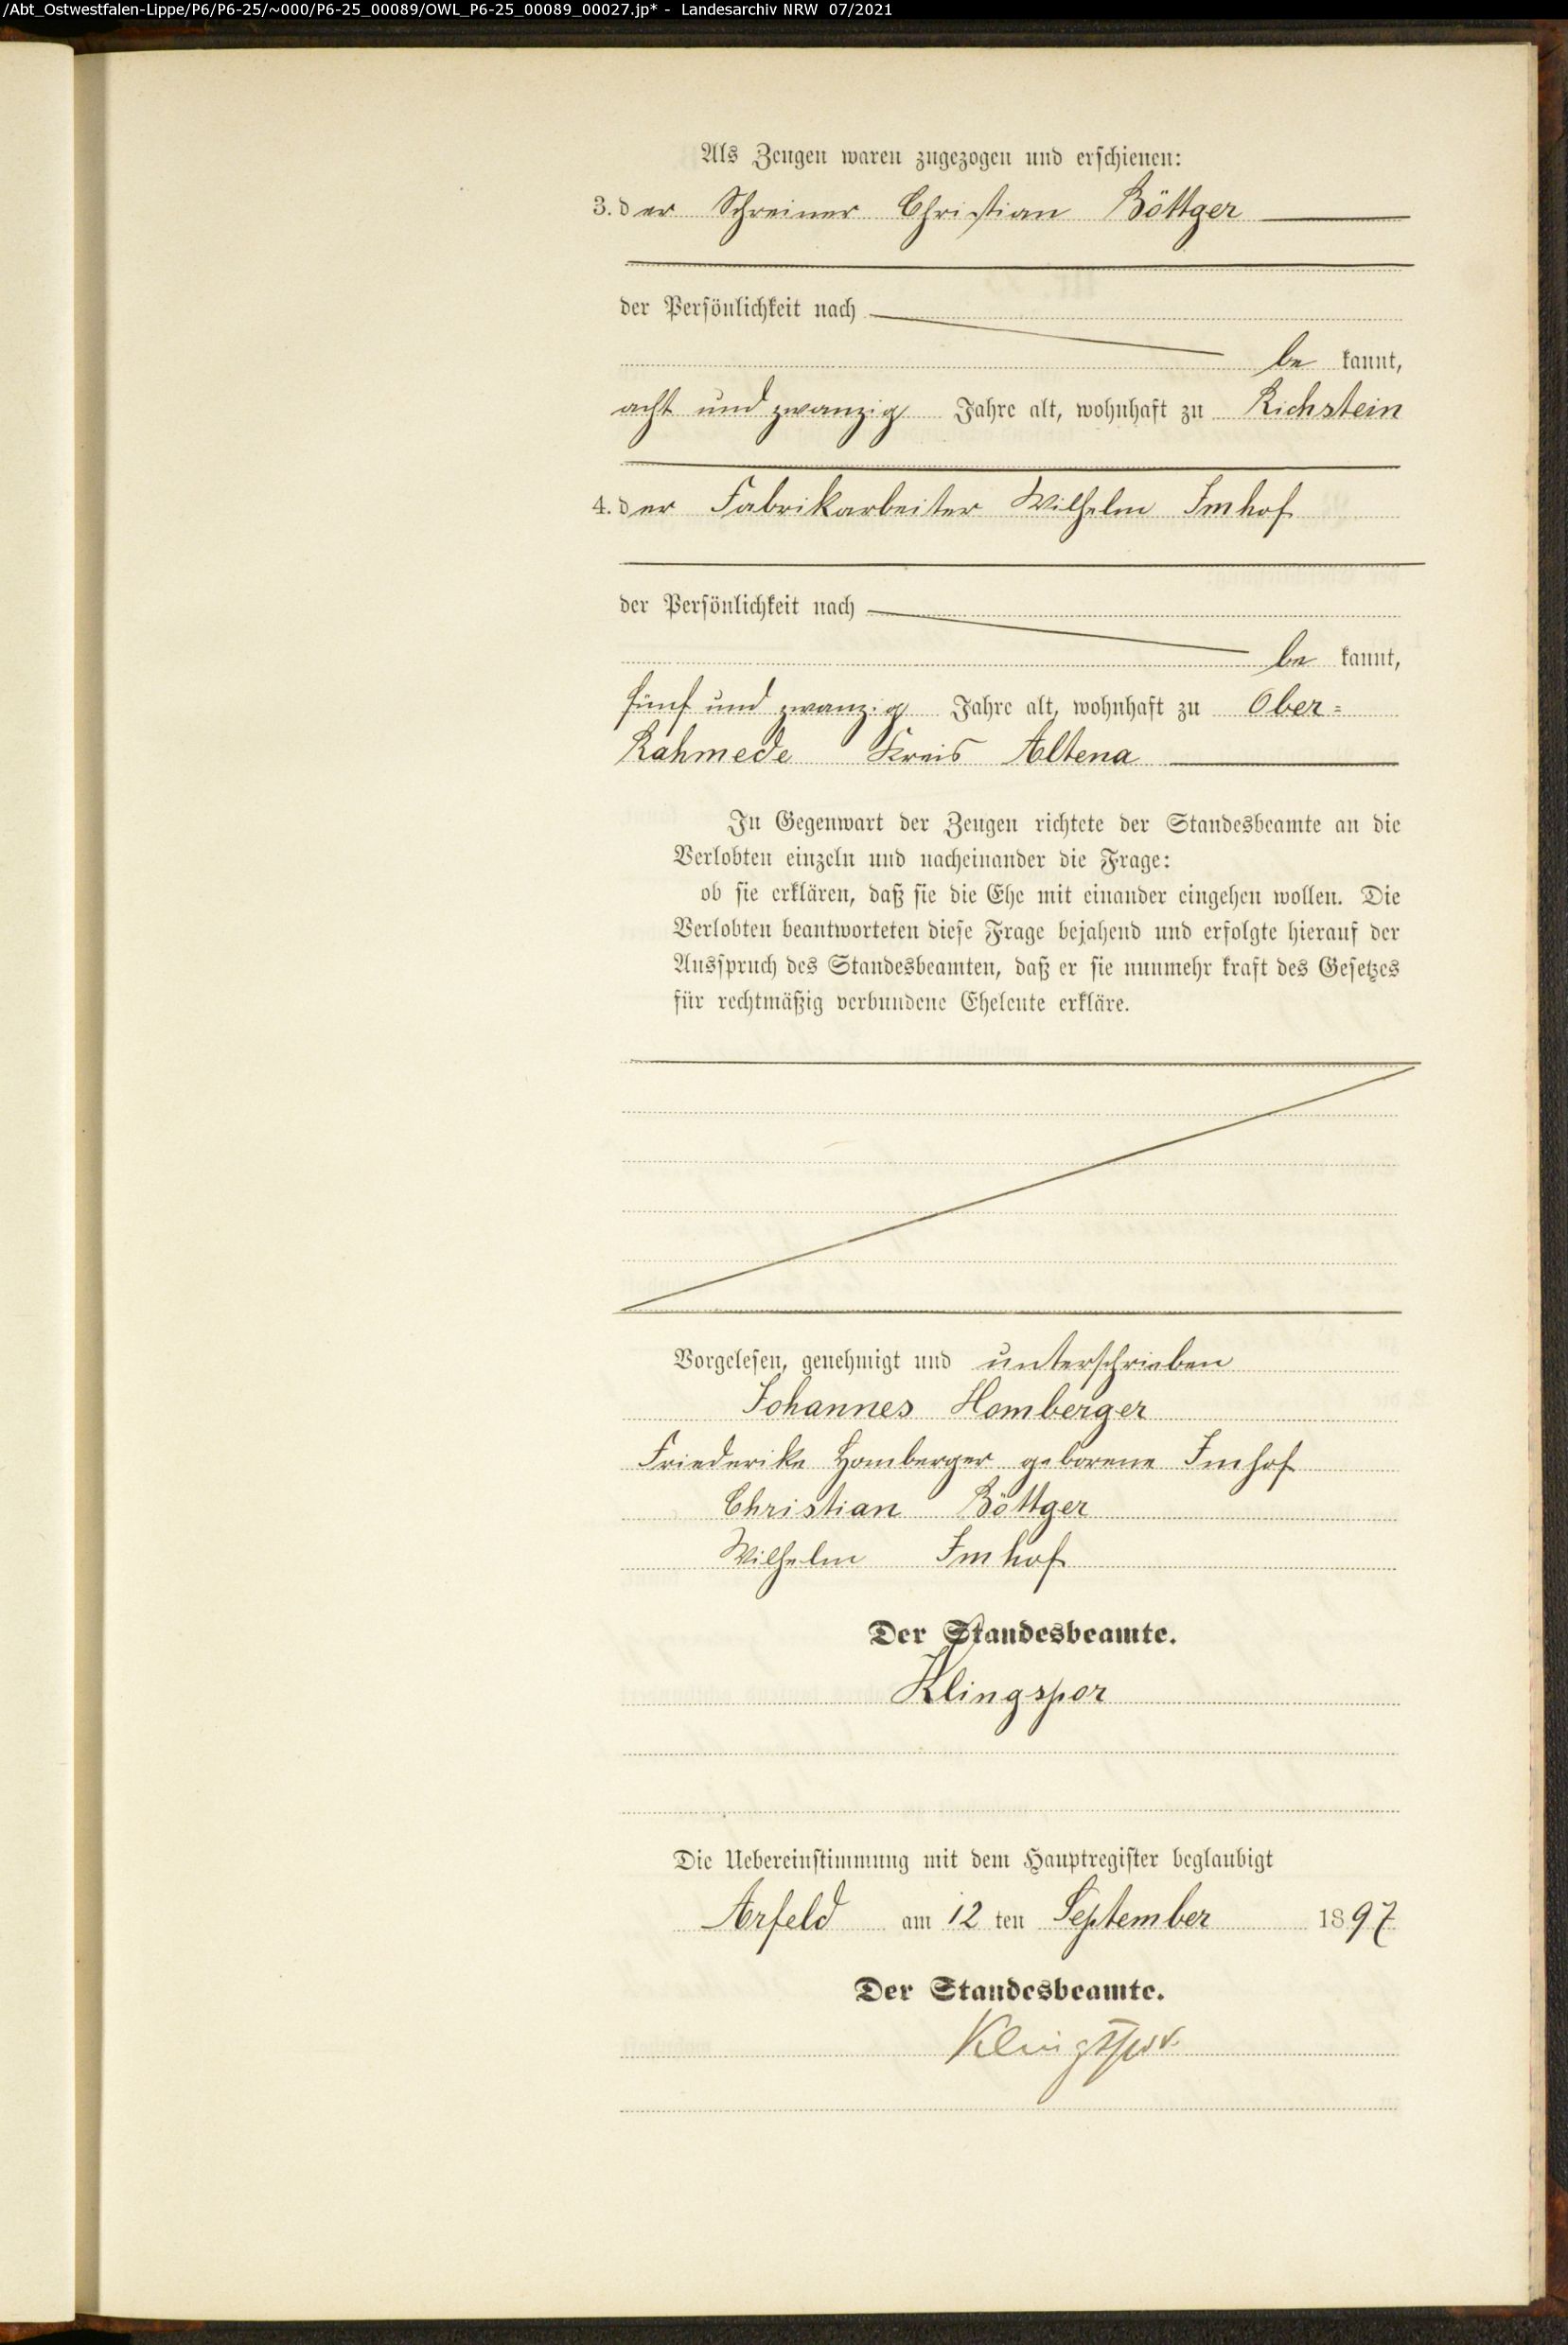 /Abt_Ostwestfalen-Lippe/P6/P6-25/~000/P6-25_00089/OWL_P6-25_00089_00027.jp* - Landesarchiv NRW 07/2021
Als Zeugen waren zugezogen und erschienen:
3. der Schreiner Christian Böttger
der Persönlichkeit nach
be kannt,
acht und zwanzig Jahre alt, wohnhaft zu Richstein
4. der Fabrikarbeiter Wilhelm Imhof
der Persönlichkeit nach
be kannt,
fünf und zwanzig Jahre alt, wohnhaft zu Ober=
Rahmede Kreis Altena
In Gegenwart der Zeugen richtete der Standesbeamte an die
Verlobten einzeln und nacheinander die Frage:
ob sie erklären, daß sie die Ehe mit einander eingehen wollen. Die
Verlobten beantworteten diese Frage bejahend und erfolgte hierauf der
Ausspruch des Standesbeamten, daß er sie nunmehr kraft des Gesetzes
für rechtmäßig verbundene Eheleute erkläre.
Vorgelesen, genehmigt und unterschrieben
Johannes Homberger
Friederike Homberger geborene Imhof
Christian Böttger
Wilhelm Imhof
Der Standesbeamte.
Klingspor
Die Uebereinstimmung mit dem Hauptregister beglaubigt
Arfeld am 12 ten September 1897
Der Standesbeamte.
Klingspor.